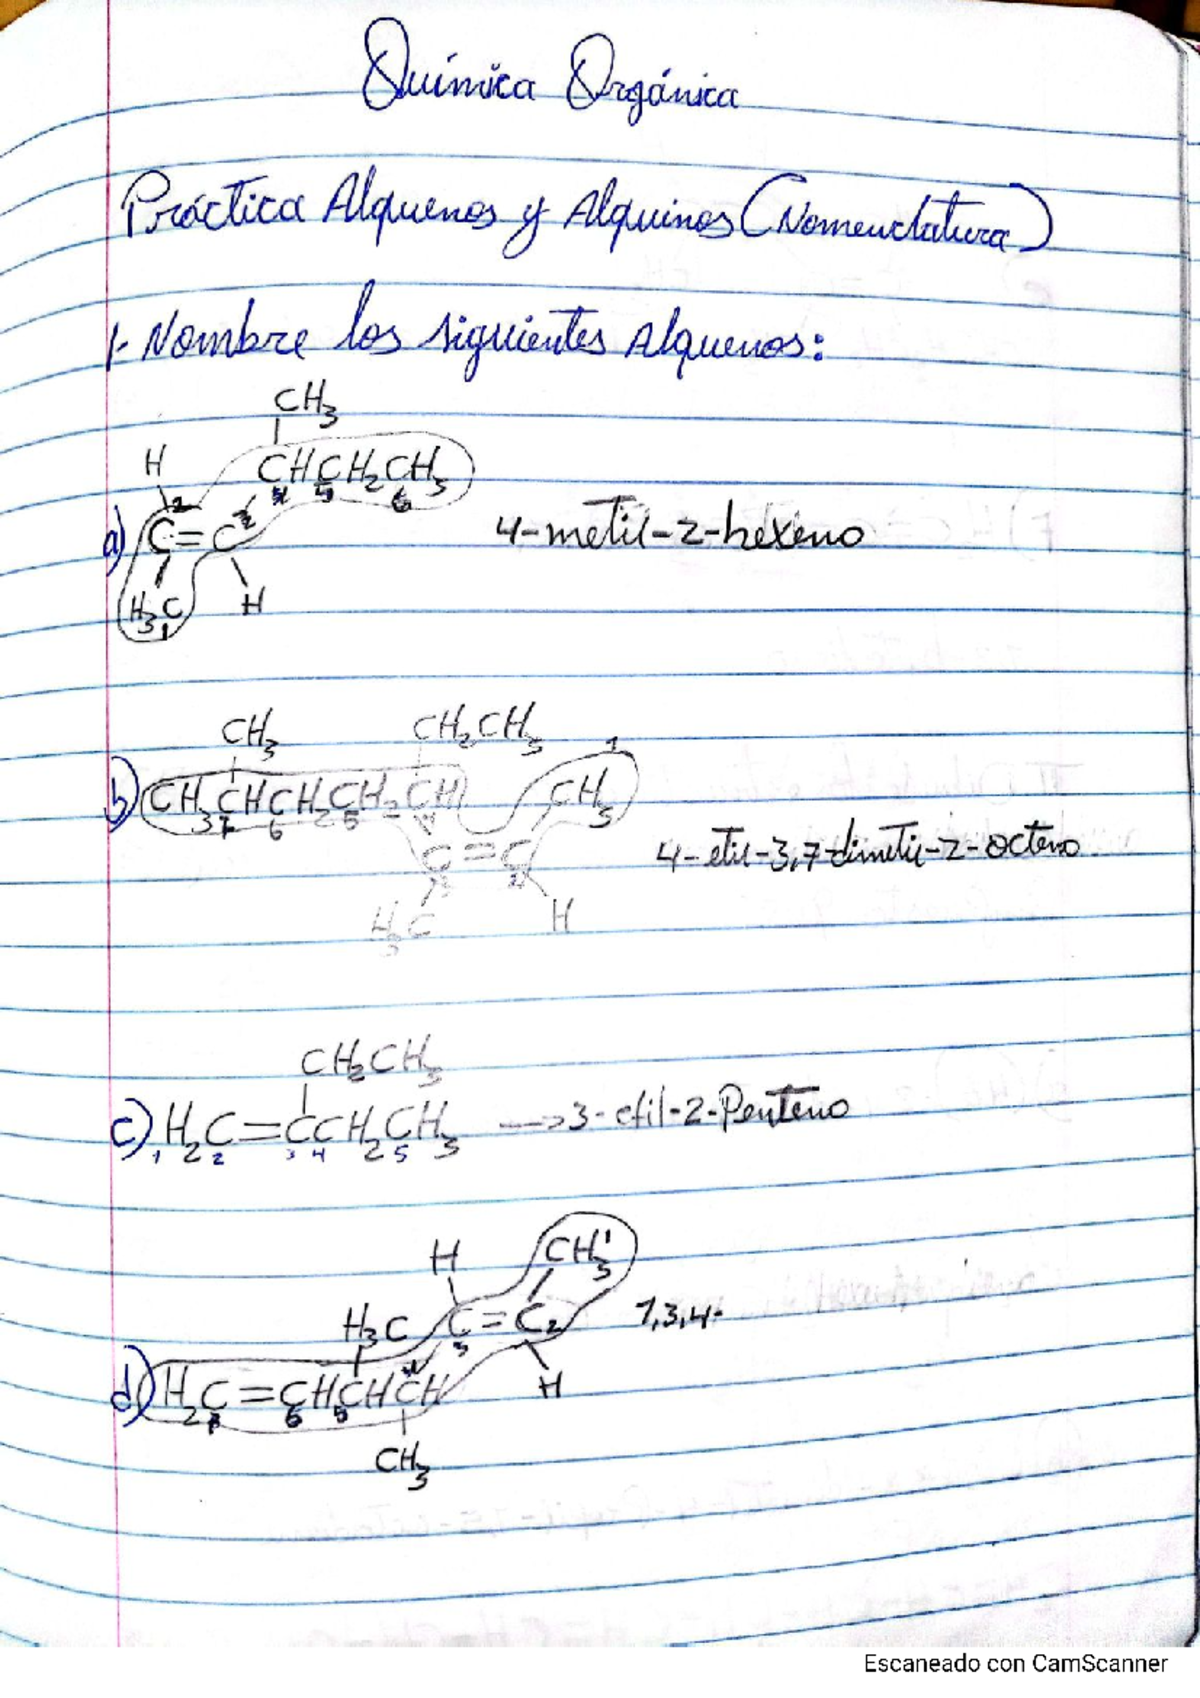 Química Orgánica
Práctica Alquenos y Alquinos (Nomenclatura)
1- Nombre los siguientes Alquenos:
CH3
H CHCH2CH3
4 5 6
a) C=C 4-metil-2-hexeno
2 3
H3C H
1
CH3 CH2CH3 1
b) CH3CHCH2CH2CH CH3
7 6 5
C=C 4-etil-3,7-dimetil-2-octeno
H3C H
CH2CH3
c) H2C=CCH2CH3 → 3-etil-2-Penteno
1 2 3 4 5
H CH3 1
H3C C=C 2 1,3,4-
3
d) H2C=CHCHCH H
6 5
CH3
Escaneado con CamScanner